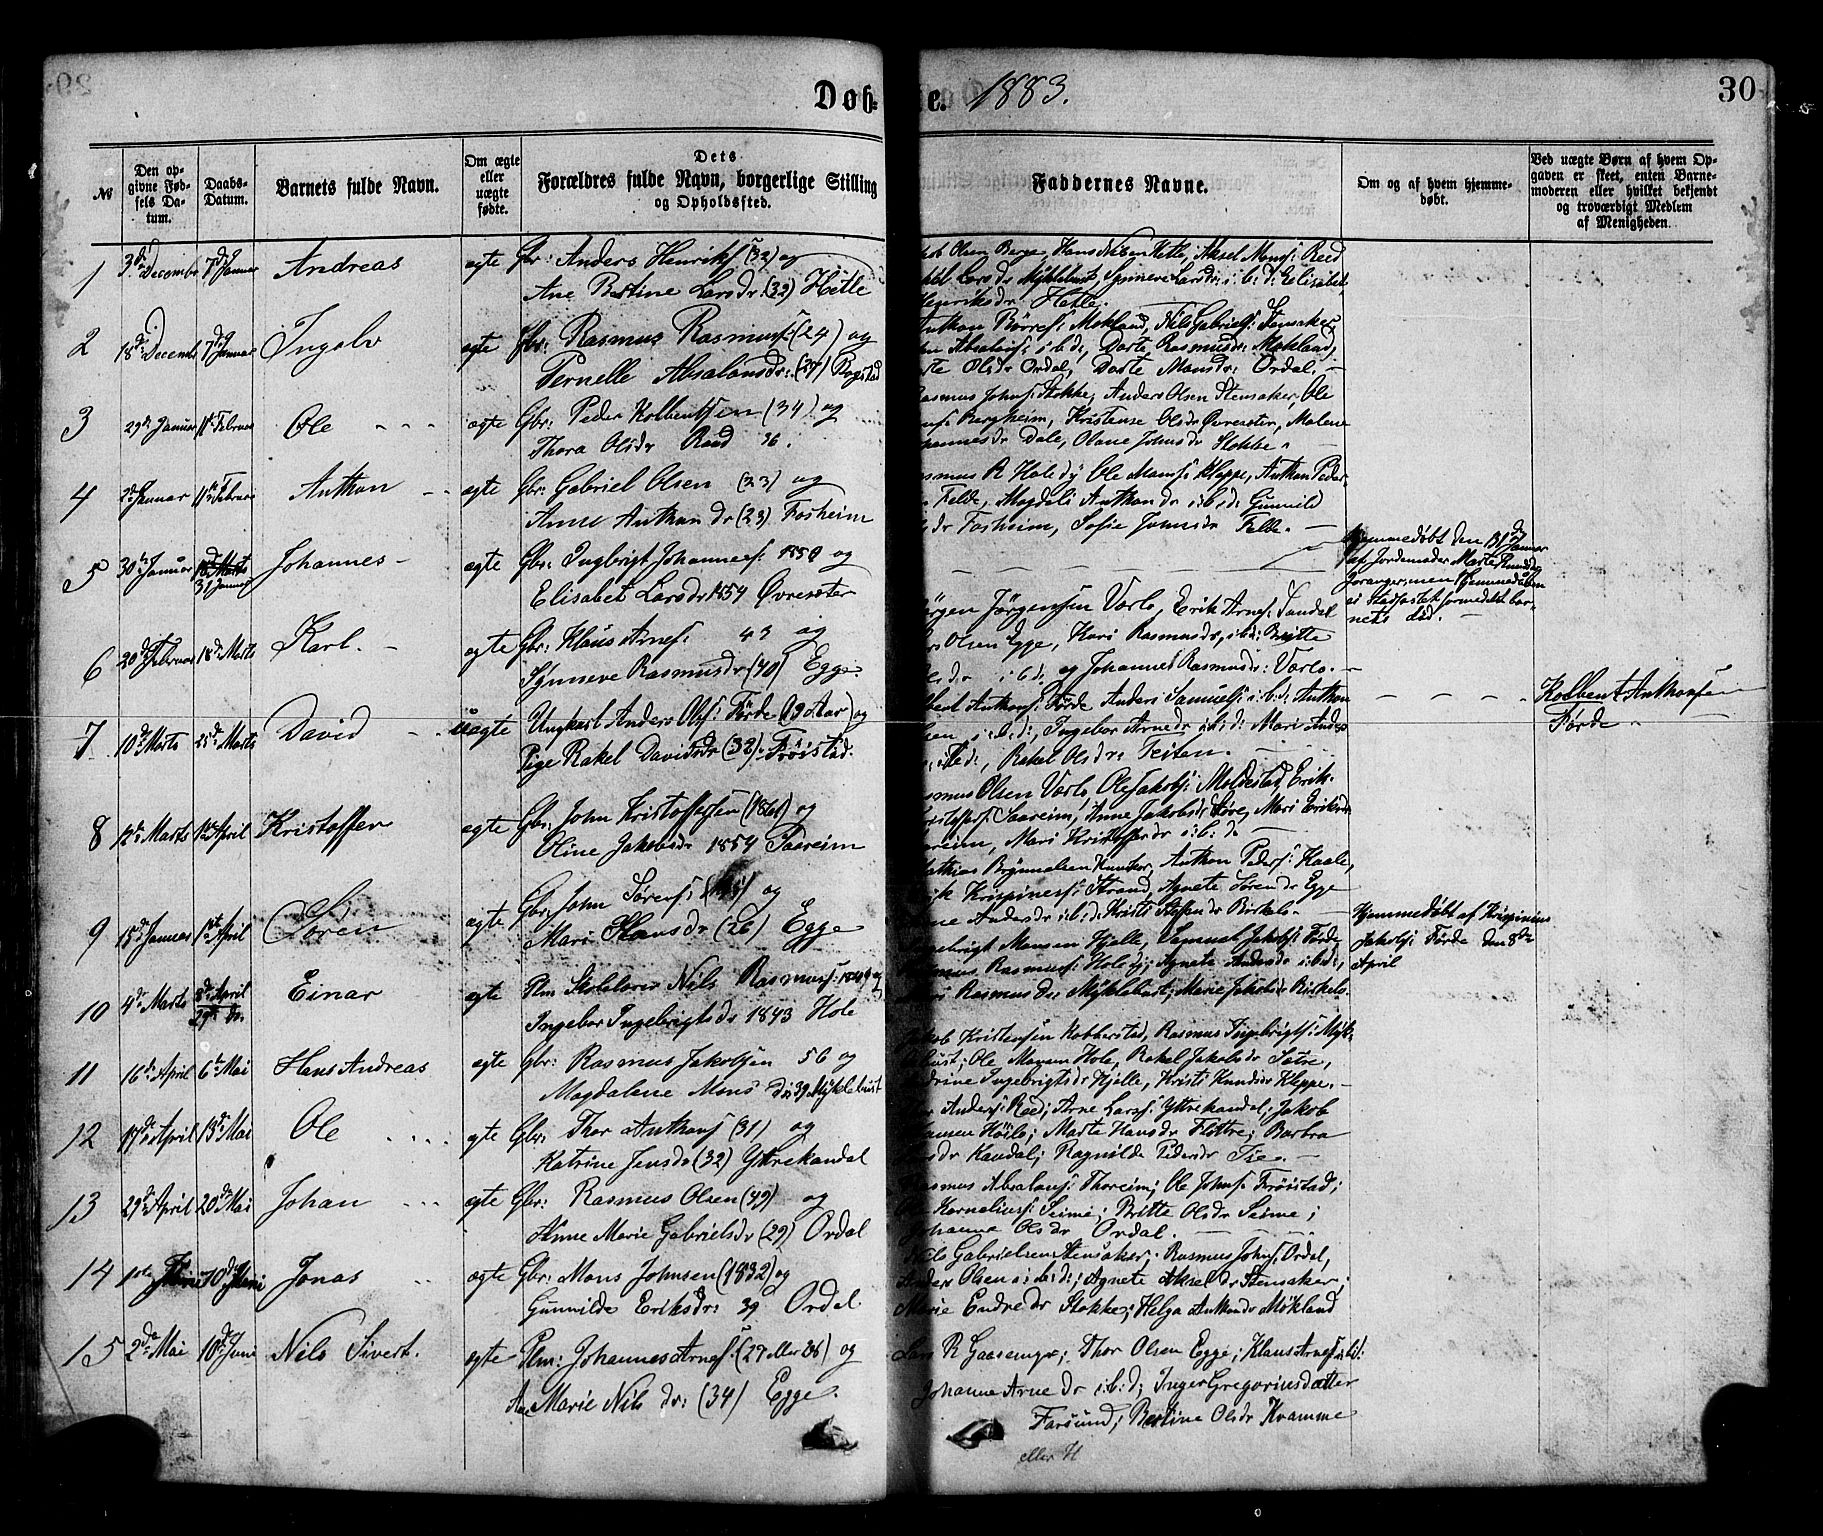 Døb-
e. 1883.
30
№
Den op-
givne Fød-
sels Da-
tum.
Daabs-
Datum.
Barnets fulde Navn.
Om ægte
eller
uægte
fødte.
Dets
Forældres fulde Navn, borgerlige Stilling
og Opholdssted.
Faddernes Navne.
Om og af hvem hjemme-
døbt.
Ved uægte Børn af hvem Op-
gaven er skeet, enten Barne-
moderen eller hvilket bekjendt
og troværdigt Medlem
af Menigheden.
1 3d Decembr 7d Januar Andreas ægte Gbr: Anders Henriks: (32) og
Ane Bertine Larsdr. (32) Hetle
Olsen Berge, Hans Nilsen Hetle, Aksel Mons: Reed
Larsdr Myklebust, Synneve Larsdr: i.b.d. Elisabet
Henriksdr Hetle.
2 18d Decemb 7d Januar Ingolv ægte Gbr: Rasmus Rasmus: (24) og
Pernelle Absalonsdr: (27) Rogstad
Anthon Børres: Mokland, Nils Gabriels: Stensaker,
Absalons: i.b.d:, Dorte Rasmusdr: Mokland,
Olsdr Ordal, Dorte Monsdr: Ordal.
3 29d Januar 11t Februar Ole ægte Gbr: Peder Kolbentsen (34) og
Thora Olsdr Reed 36.
Rasmus Johns: Stokke, Anders Olsen Stensaker, Ole
Bergheim, Kristense Olsdr Øvresæter, Malene
Johannesdr Dale, Oline Johnsdr Stokke
4 2d Januar 11t Februar Anthon ægte Gbr: Gabriel Olsen (23) og
Anne Anthondr (23) Fosheim
Rasmus R Holedy Ole Mons: Kleppe, Anthon Peder
Felde, Magdeli Anthondr i:b:d: Gunnild
dr Fosheim, Sofie Jonsdr Felde.
5 30d Januar 18d Marts
31 Januar Johannes ægte Gbr: Ingbrigt Johannes: 1850 og
Elisabet Larsdr 1854 Øvresæter
Hjemmedøbt den 31d Januar
af Jordemoder Marte Knudsdr
Joranger, men Hjemmedaaben
ei stadfæstet formedelst bar-
nets død.
6 20d Februar 18d Marts Karl. ægte Gbr: Klaus Arnes: 43 og
Synneve Rasmusdr (40) Egge.
Jørgen Jørgensen Varlo, Erik Arnes: Sandal
Olsen Egge, Kari Rasmusdr, i:b:d: Britte
i.b.d: og Johannes Rasmusdr: Varlo.
7 10d Marts 25d Marts David uægte Ungkarl Anders Ols: Førde (19 Aar) og
Pige Rakel Davidsdr (32) Frøistad.
Anthons: Førde, Anders Samuels: i.b.d: Anthon
i.b.d:, Ingebor Arnedr i:b:d: Mari Anders
Rakel Olsdr Feiten.
Kolbent Anthonsen
Førde
8 12d Marts 1ste April Kristoffer ægte Gbr: John Kristoffersen (1861) og
Oline Jakobsdr 1854 Saareim
Rasmus Olsen Varlo, Ole Jakobs: Moldestad, Erik
Kristoffers: Saareim, Anne Jakobsdr Søre, Mari Eriksdr
Saareim, Mari Kristoffersdr i:b:d
9 15d Januar 1ste April Søren ægte Gbr: John Sørens: og
Mari Hansdr (26) Egge
Mathias Brynnelsen Anthon Peders: Kaale,
Krispines: Strand, Agnete Sørendr Egge
Andersdr i:b:d: Kristi Steffendr Birkelo.
Hjemmedøbt af Krispinus
Jakobs: Førde den 8de
April
10 4d Marts 8d April
29d do. Einar ægte Plm: Skolelærer Nils Rasmus: 1849 og
Ingebor Ingebrigtsdr 1843 Hole
Ingebrigt Monsen Hjelle, Samuel Jakobs: Førde
Rasmus Rasmus: Holedy; Agnete Andersdr i:b:d:,
Rasmusdr Myklebust; Marie Jakobsdr Birkelo.
11 16d April 6te Mai Hans Andreas ægte Gbr: Rasmus Jakobsen 56 og
Magdalene Monsdr: 39 Myklebust
Jakob Kristensen Kobberstad, Rasmus Ingebrigts: Myk-
bust; Ole Mogen Hole, Rakel Jakobsdr Sætre,
Ingebrigtsdr Hjelle, Kristi Knudsdr Kleppe.
12 17d April 13d Mai Ole ægte Gbr: Thor Anthons (31) og
Katrine Jensdr (32) Ytrekandal
Anders: Reed; Arne Lars: Ytrekandal; Jakob
Høilo; Marte Hansdr Flittre; Barbra
dr Kandal; Ragnilde Pedersdr Tie.
13 29d April 20d Mai Johan ægte Gbr: Rasmus Olsen (49) og
Anne Marie Gabrielsdr (29) Ordal
Rasmus Absalons: Thoreim; Ole Johns: Frøistad;
Kornelius: Seime; Britte Olsdr Seime;
Johanne Olsdr Ordal.
14 1ste 10d Juni Jonas ægte Gbr: Mons Johnsen (1832) og
Gunnilde Eriksdr: 39 Ordal
Nils Gabrielsen Stensaker; Rasmus Johns: Ordal,
Anders Olsen i:b:d:; Agnete Akseldr Stensaker;
Marie Endredr Stokke; Helga Anthondr Møkland
15 2d Mai 10d Juni Nils Sivert. ægte Plm: Johannes Arnes: (27 eller 28) og
Ane Marie Nilsdr: (34) Egge.
Lars R Gaasemyr; Thor Olsen Egge; Klaus Arnes: i.b.d:
Johanna Arnedr i:b:d; Inger Gregoriusdatter
Farsund; Bertine Olsdr Kvamme
eller H